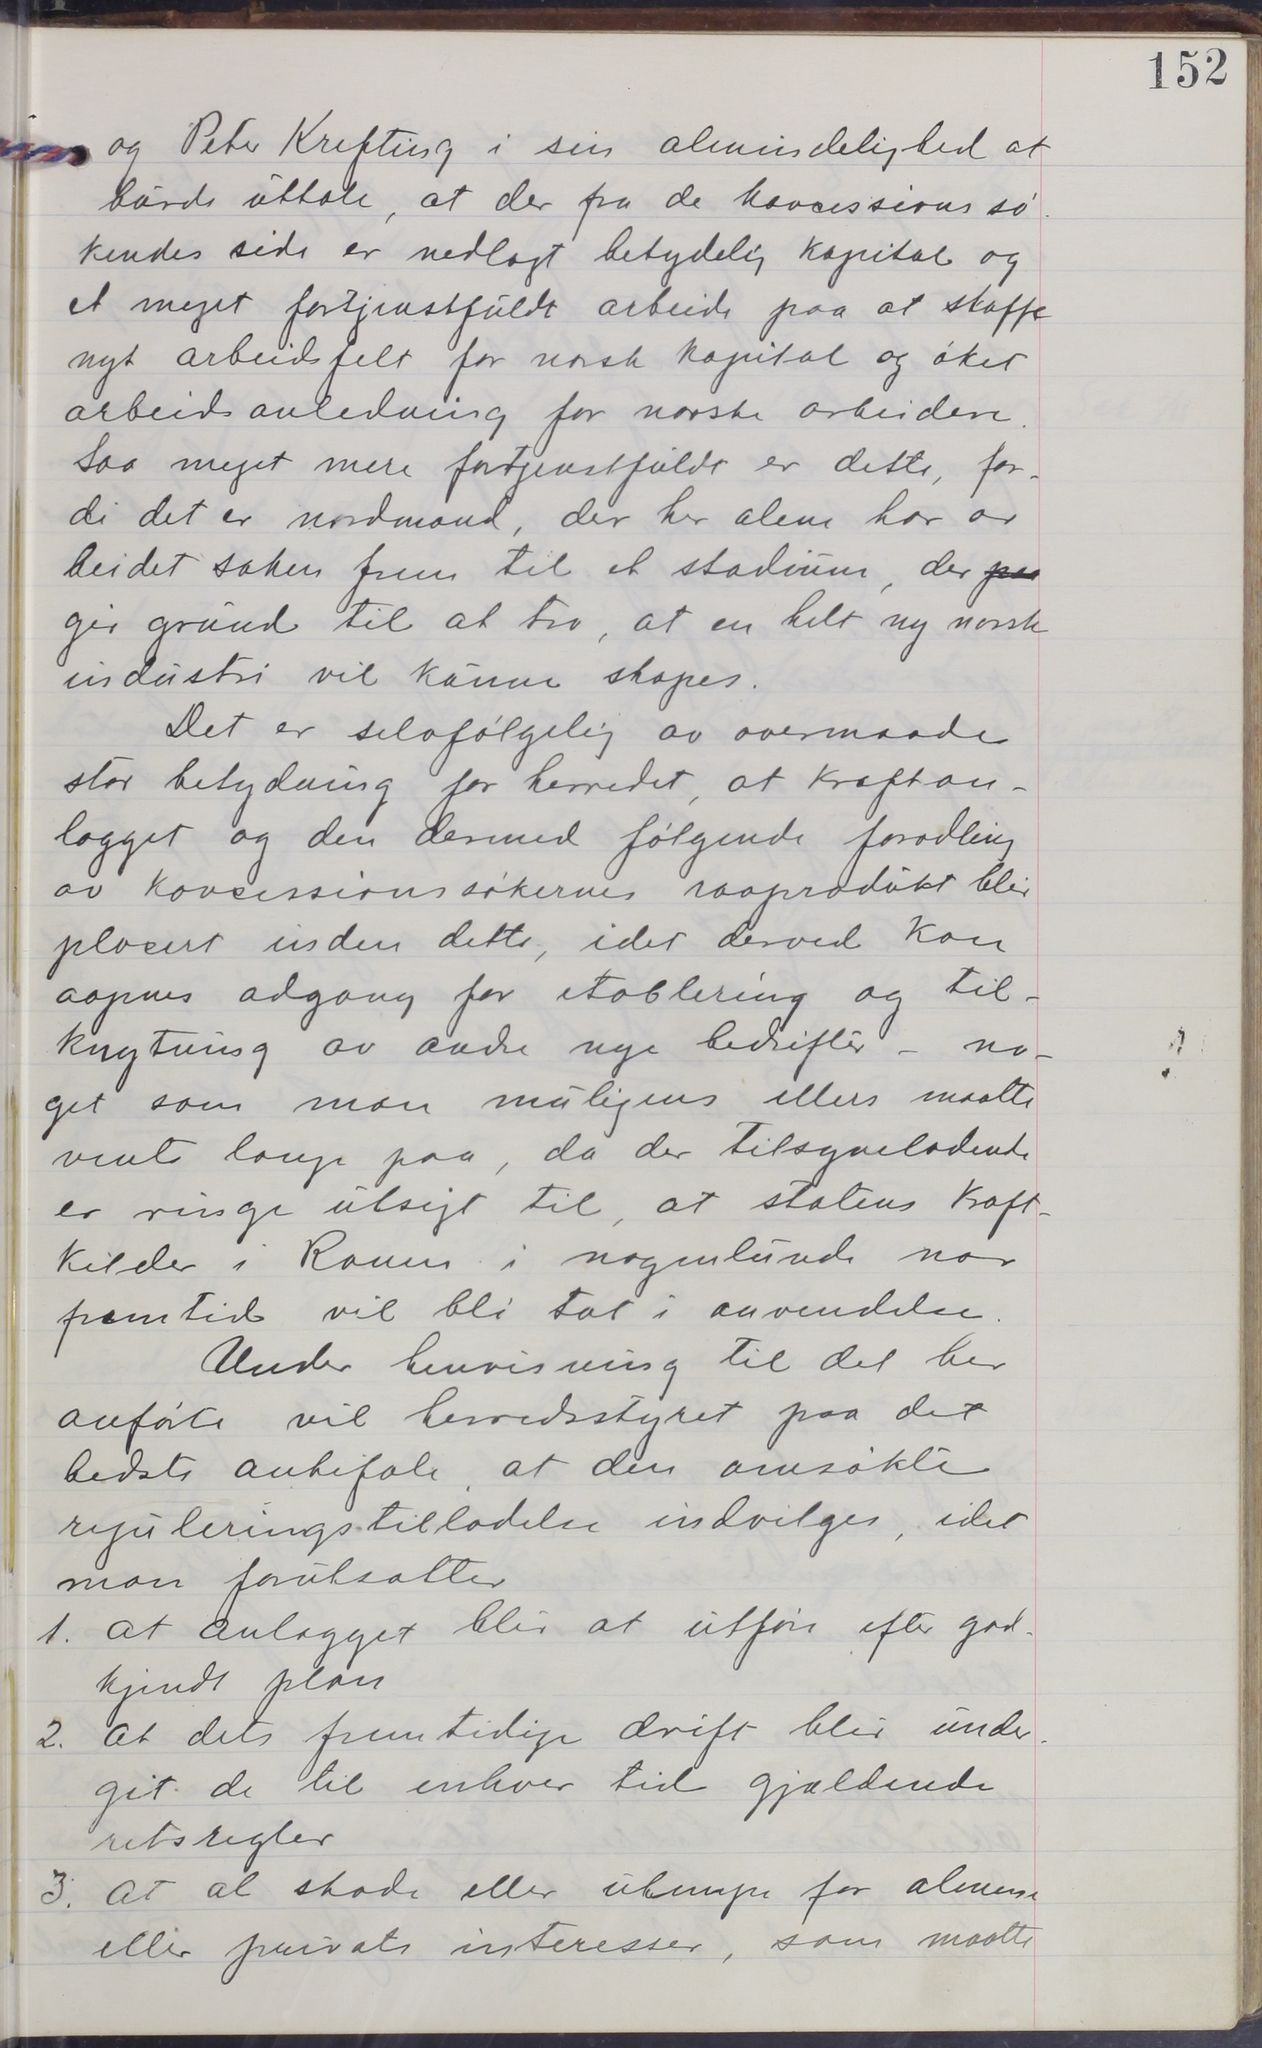 152
og Peter Krefting i sin almindelighed at
burde uttale, at der fra de koncessionssø-
kendes side er nedlagt betydelig kapital og
et meget fortjenstfuldt arbeide paa at skaffe
nyt arbeidsfelt for norsk kapital og øket
arbeidsanledning for norske arbeidere.
Saa meget mere fortjenstfuldt er dette, for-
di det er nordmænd, der her alene har ar
beidet saken frem til et stadium, der paa
gir grund til at tro, at en helt ny norsk
industri vil kunne skapes.
Det er selvfølgelig av overmaade
stor betydning for herredet, at kraftan-
lægget og den dermed følgende forædling
av koncessionssøkernes raaprodukt blir
placert inden dette, idet derved kan
aapnes adgang for etablering og til-
knytning av andre nye bedrifter - no-
get som man muligens ellers maatte
vente længe paa, da der tilsynelatende
er ringe utsigt til, at statens kraft-
kilder i Ranen i nogenlunde nær
fremtid vil bli tat i anvendelse.
Under henvisning til det her
anførte vil herredsstyret paa det
bedste anbefale, at den ansøkte
reguleringstilladelse indvilges, idet
man forutsætter
1. at anlægget blir at utføre efter god-
kjendt plan
2. at dets fremtidige drift blir under-
git de til enhver tid gjældende
retsregler
3. at al skade eller ulempe for almene
eller private interesser, som maatte